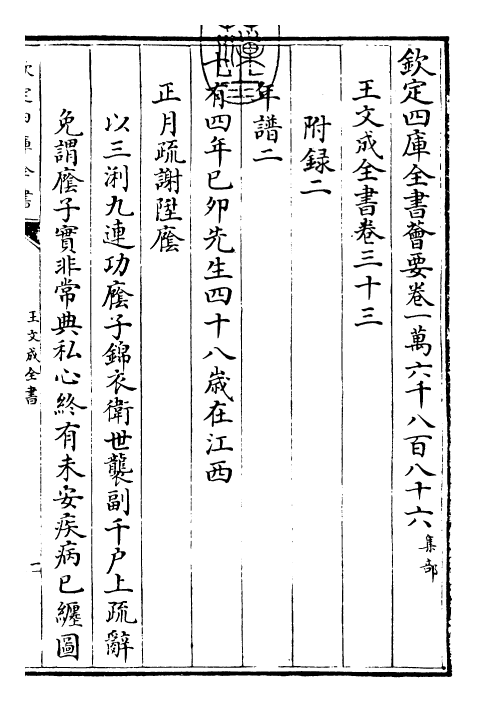 欽定四庫全書薈要卷一萬六千八百八十六集部
王文成全書卷三十三
附録二
年譜二
十有四年己夘先生四十八歲在江西
正月疏謝陞廕
以三浰九連功廕子錦衣衛世襲副千户上疏辭
免謂廕子實非常典私心終有未安疾病已纏圖
王文成全書
一